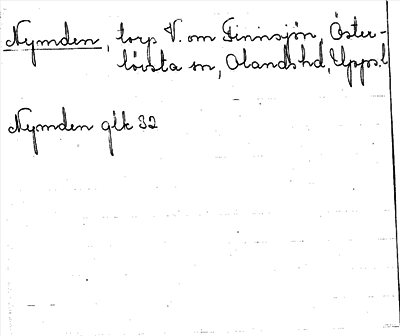 Nymden, torp V. om Finnsjön, Öster-
lövsta sn, Olandshd, Upps.l
Nymden glk 32